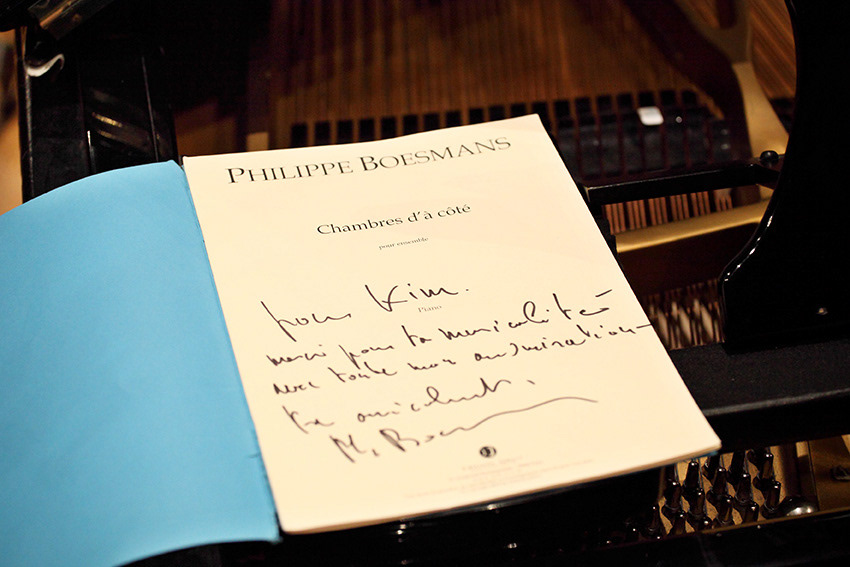 PHILIPPE BOESMANS
Chambres d'à côté
pour ensemble
pour Kim.
Piano
merci pour ta musicalité
avec toute mon admiration
très amicalement.
Ph. Boesmans